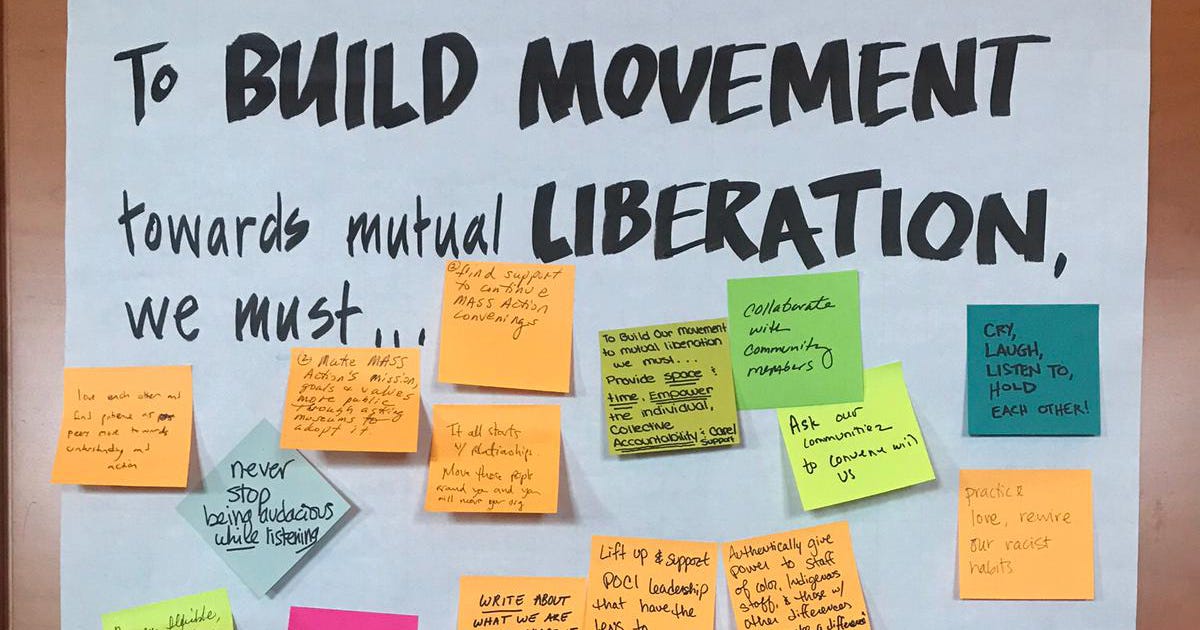 To BUILD MOVEMENT
towards mutual LIBERATION,
we must...
find support
to continue
MASS Action
Convenings
(2) Make MASS
Action's mission,
goals & values
more public
through asking
museums to
adopt it.
love each other and
find patience as
peers move towards
understanding and
action
never
stop
being audacious
while listening
It all starts
w/ relationships.
Move those people
around you and you
will move your org
To Build Our movement
to mutual liberation
we must...
Provide space &
time, Empower
the individual,
Collective
Accountability & Care/
Support
Collaborate
with
community
members
Ask our
communities
to convene with
us
CRY,
LAUGH,
LISTEN TO,
HOLD
EACH OTHER!
practice
love, rewire
our racist
habits
flexible,
WRITE ABOUT
WHAT WE ARE
Lift up & support
POCI leadership
that have the
lens to
Authentically give
power to staff
of color, Indigenous
staff, & those w/
other differences
a difference